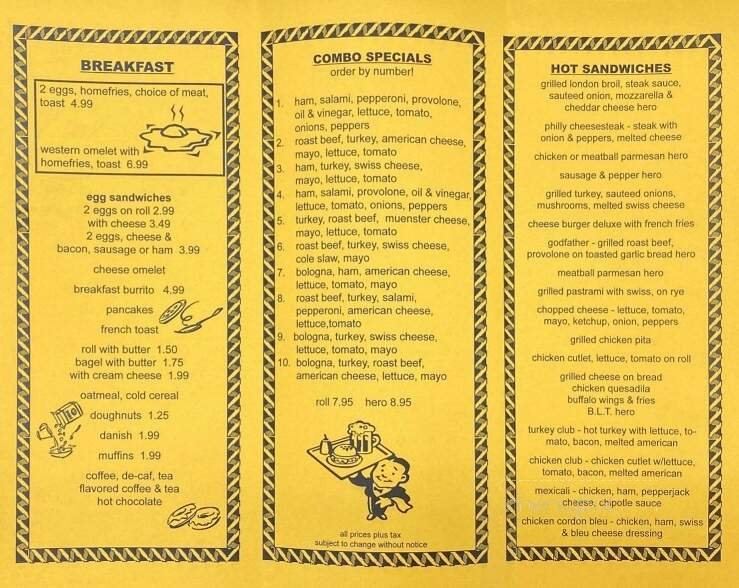 BREAKFAST
2 eggs, homefries, choice of meat,
toast 4.99
western omelet with
homefries, toast 6.99
egg sandwiches
2 eggs on roll 2.99
with cheese 3.49
2 eggs, cheese &
bacon, sausage or ham 3.99
cheese omelet
breakfast burrito 4.99
pancakes
french toast
roll with butter 1.50
bagel with butter 1.75
with cream cheese 1.99
oatmeal, cold cereal
doughnuts 1.25
danish 1.99
muffins 1.99
coffee, de-caf, tea
flavored coffee & tea
hot chocolate
COMBO SPECIALS
order by number!
1. ham, salami, pepperoni, provolone,
oil & vinegar, lettuce, tomato,
onions, peppers
2. roast beef, turkey, american cheese,
mayo, lettuce, tomato
3. ham, turkey, swiss cheese,
mayo, lettuce, tomato
4. ham, salami, provolone, oil & vinegar,
lettuce, tomato, onions, peppers
5. turkey, roast beef, muenster cheese,
mayo, lettuce, tomato
6. roast beef, turkey, swiss cheese,
cole slaw, mayo
7. bologna, ham, american cheese,
lettuce, tomato, mayo
8. roast beef, turkey, salami,
pepperoni, american cheese,
lettuce,tomato
9. bologna, turkey, swiss cheese,
lettuce, tomato, mayo
10. bologna, turkey, roast beef,
american cheese, lettuce, mayo
roll 7.95 hero 8.95
all prices plus tax
subject to change without notice
HOT SANDWICHES
grilled london broil, steak sauce,
sauteed onion, mozzarella &
cheddar cheese hero
philly cheesesteak - steak with
onion & peppers, melted cheese
chicken or meatball parmesan hero
sausage & pepper hero
grilled turkey, sauteed onions,
mushrooms, melted swiss cheese
cheese burger deluxe with french fries
godfather - grilled roast beef,
provolone on toasted garlic bread hero
meatball parmesan hero
grilled pastrami with swiss, on rye
chopped cheese - lettuce, tomato,
mayo, ketchup, onion, peppers
grilled chicken pita
chicken cutlet, lettuce, tomato on roll
grilled cheese on bread
chicken quesadila
buffalo wings & fries
B.L.T. hero
turkey club - hot turkey with lettuce, to-
mato, bacon, melted american
chicken club - chicken cutlet w/lettuce,
tomato, bacon, melted american
mexicali - chicken, ham, pepperjack
cheese, chipotle sauce
chicken cordon bleu - chicken, ham, swiss
& bleu cheese dressing